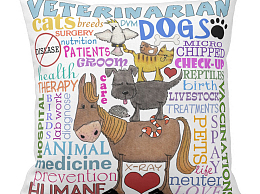 VETERINARIAN
cats breeds DVM DOGS
SURGERY
nutrition MICRO
DISEASE PATIENTS CHIPPED
GROOM CHECK-UP
health REPTILES
THERAPY care birth
BIRDS LIVESTOCK
HOSPITAL lab work TREATMENTS
diagnose
SPAY
PETS VACCINATION
ANIMAL
medicine X-RAY life
prevention neuter
HUMANE